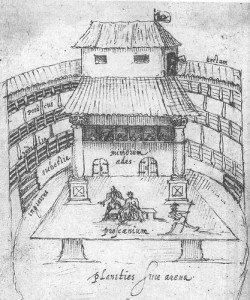 tectum
porticus
orchestra
mimorum
ædes
ingressus
proscænium
planities sive arena